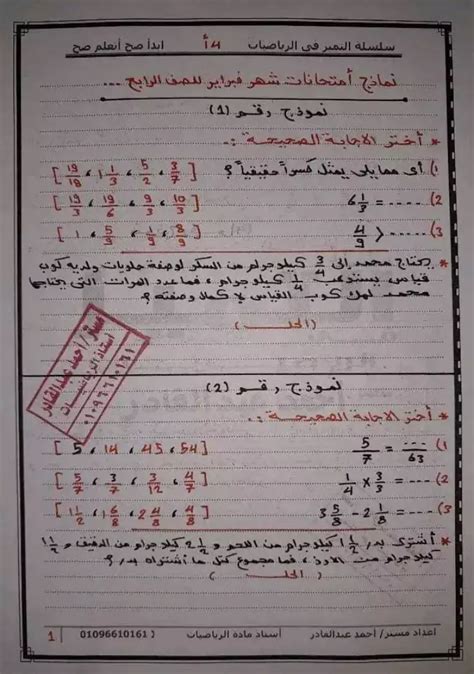 سلسلة التميز في الرياضيات 4أ ابدأ صح أتعلم صح
نماذج امتحانات شهر فبراير للصف الرابع ...
نموذج رقم (1)
* أختر الاجابة الصحيحة :.
1) أى مما يلى يمثل كسراً حقيقياً؟ [3/7 ، 5/2 ، 1 1/3 ، 19/18]
2) ----- = 6 1/3 [10/3 ، 9/3 ، 19/6 ، 19/3]
3) ----- < 4/9 [8/9 ، 1/9 ، 5/3 ، 1]
* يحتاج محمد إلى 3/4 كيلو جرام من السكر لوصفة حلويات ولديه كوب
قياس يستوعب 1/4 كيلو جرام ، فما عدد المرات التى يحتاجها
محمد لملئ كوب القياس لإكمال وصفته ؟
(الحل)
مستر / أحمد عبدالقادر
أستاذ الرياضيات
٠١٠٩٦٦١٠١٦١
نموذج رقم (2)
* أختر الاجابة الصحيحة :.
1) 5/7 = ---/63 [54 ، 45 ، 14 ، 5]
2) ----- = 1/4 × 3/3 [4/7 ، 3/12 ، 3/7 ، 5/7]
3) ----- = 3 5/8 - 2 1/8 [4/8 ، 2 4/8 ، 1 6/8 ، 1 1/2]
* أشترى بدر 1 1/2 كيلو جرام من اللحم و 2 1/2 كيلو جرام من الدقيق و 1 1/2
كيلو جرام من الأرز ، فما مجموع كتل ما أشتراه بدر ؟
(الحل)
اعداد مستر/ أحمد عبدالقادر أستاذ مادة الرياضيات ( 01096610161 1